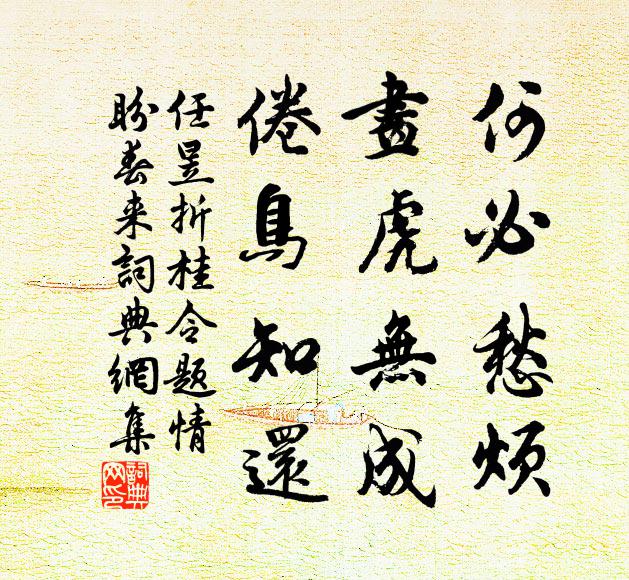 何必愁煩
畫虎無成
倦鳥知還
任昱折桂令題情
盼春来詞典網集
詞典网印